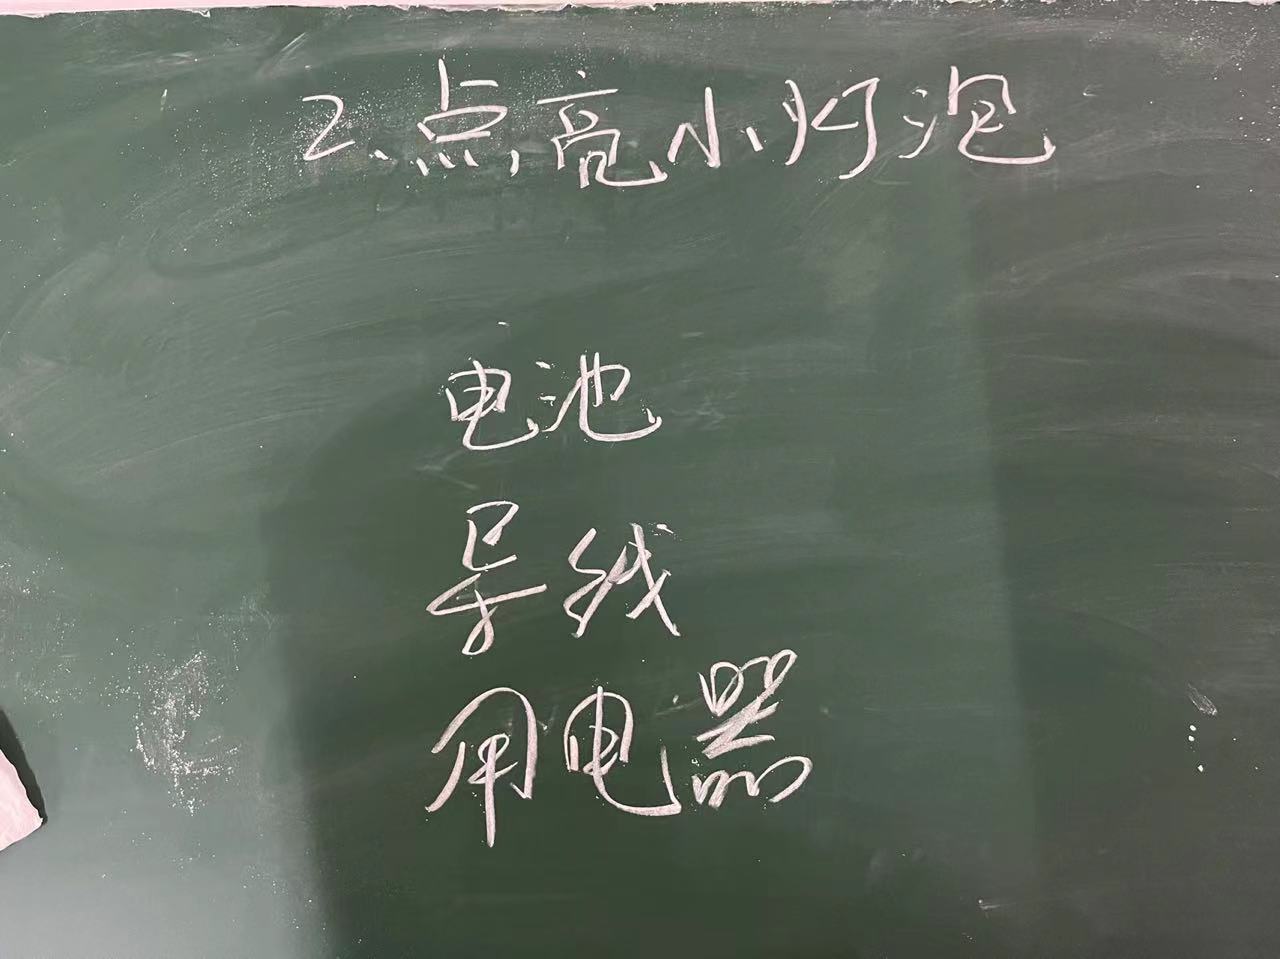 2、点亮小灯泡
电池
导线
用电器